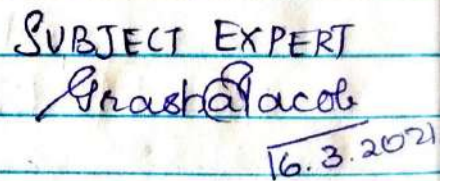 SUBJECT EXPERT
Grash@Jacob
16.3.2021